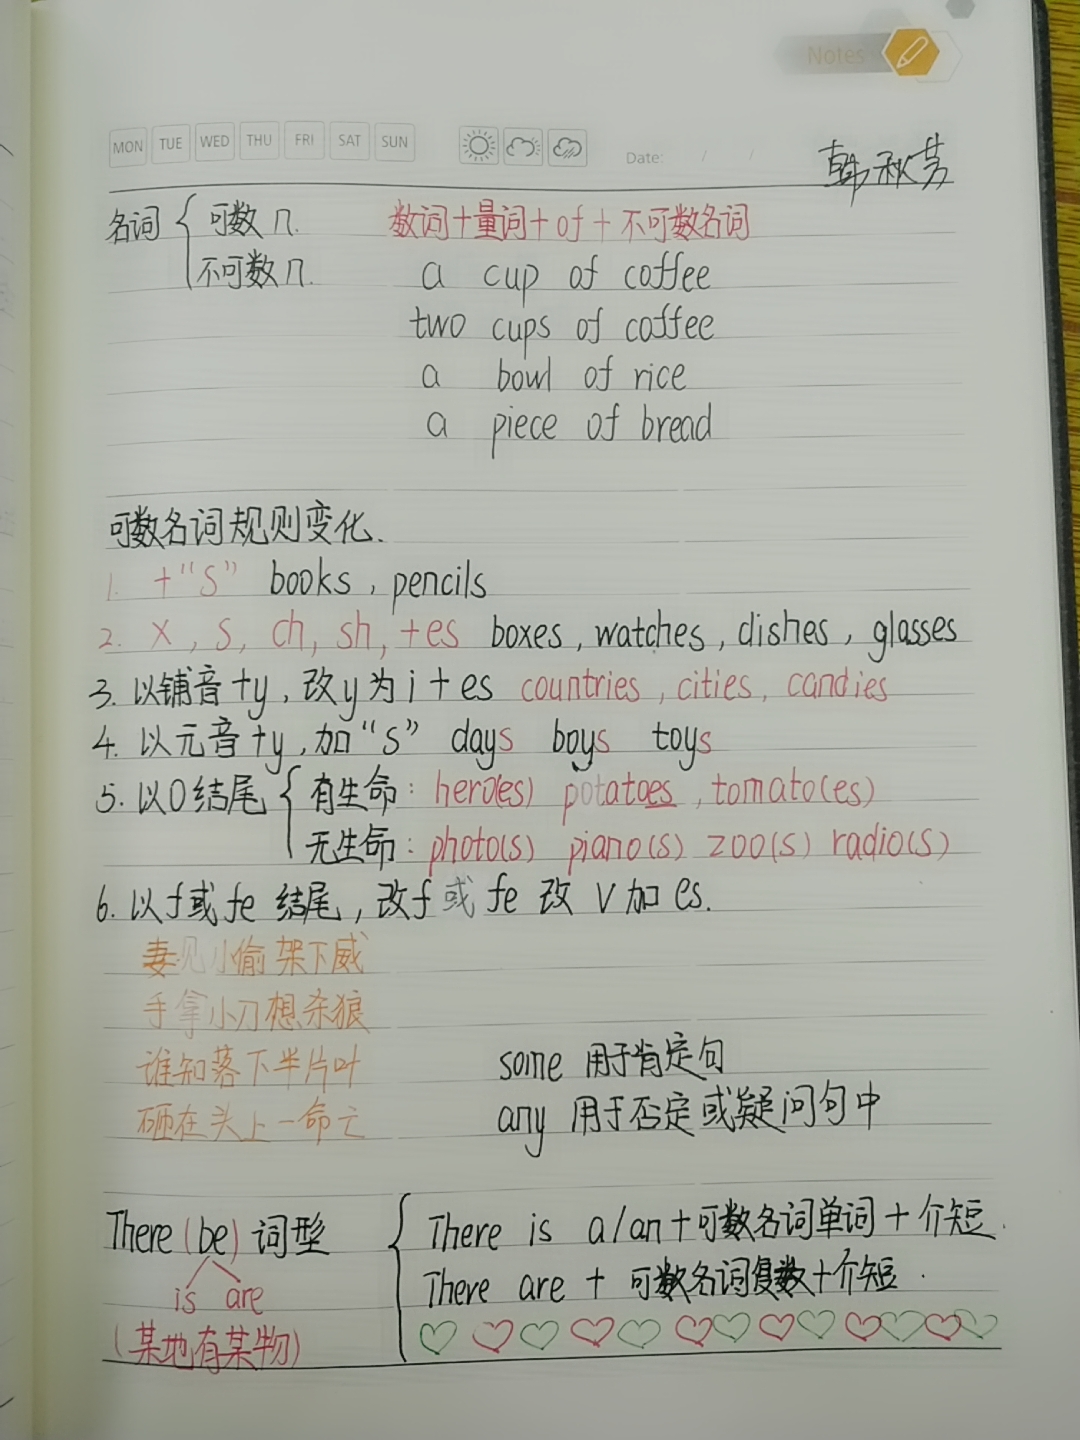 Notes
MON TUE WED THU FRI SAT SUN Date: / /
韩秋芳
名词 { 可数 n. 数词+量词+of+不可数名词
不可数 n. a cup of coffee
two cups of coffee
a bowl of rice
a piece of bread
可数名词规则变化.
1. +"S" books, pencils
2. x, s, ch, sh, +es boxes, watches, dishes, glasses
3. 以铺音+y, 改y为i+es countries, cities, candies
4. 以元音+y, 加"S" days boys toys
5. 以O结尾 { 有生命: hero(es) potatoes, tomato(es)
无生命: photo(s) piano(s) zoo(s) radio(s)
6. 以f或fe结尾, 改f或fe改V加es.
妻见小偷架下威
手拿小刀想杀狼
谁知落下半片叶
砸在头上一命亡
some 用于肯定句
any 用于否定或疑问句中
There (be) 词型 { There is a/an+可数名词单词+介短.
is are There are + 可数名词复数+介短.
(某地有某物)